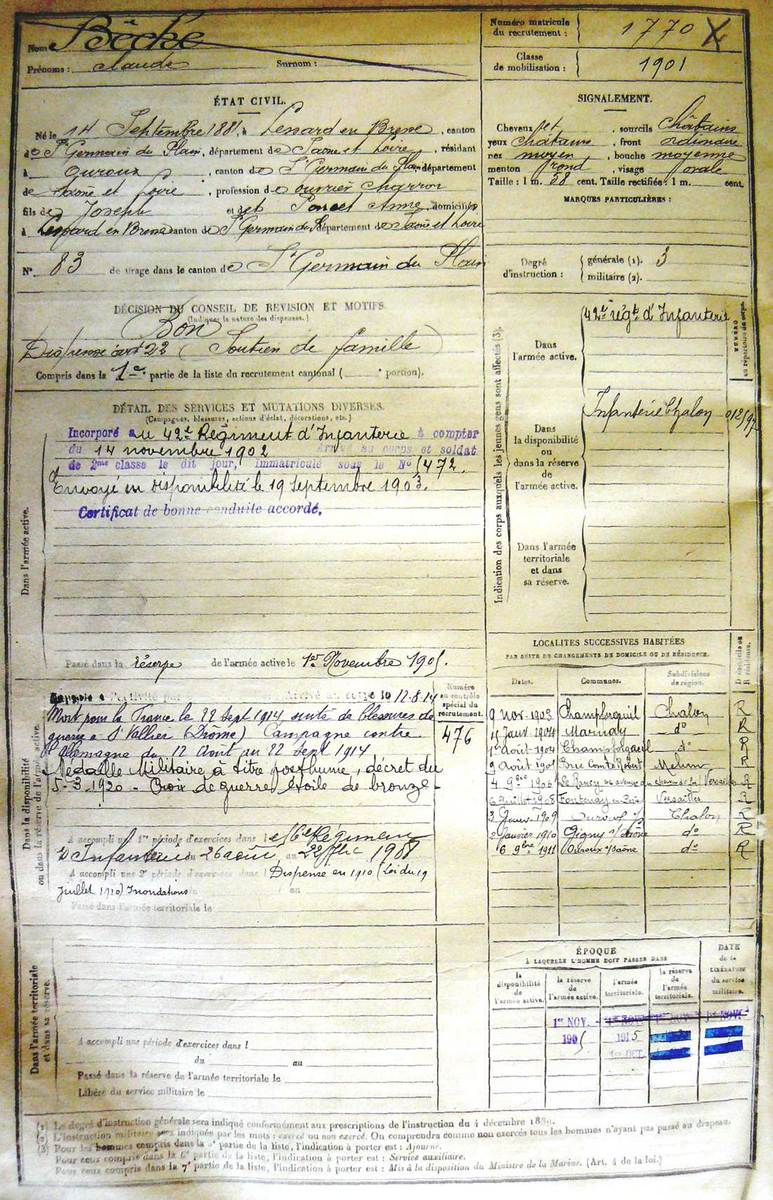 Nom Bêcke
Prénoms : Claude Surnom :
Numéro matricule du recrutement : 1770
Classe de mobilisation : 1901
ÉTAT CIVIL.
Né le 14 Septembre 1881, à Lessard en Bresse, canton
de St Germain du Plain, département de Saône et Loire, résidant
à Ouroux, canton de St Germain du Plain, département
de Saône et Loire, profession d ouvrier charron
fils de Joseph et de Poncet Anne, domiciliés
à Lessard en Bresse canton de St Germain du département de Saône et Loire
N° 83 de tirage dans le canton de St Germain du Plain
SIGNALEMENT.
Cheveux et , sourcils Châtains
yeux châtains , front ordinaire
nez moyen , bouche moyenne
menton rond , visage ovale
Taille : 1 m. 58 cent. Taille rectifiée : 1 m. cent.
MARQUES PARTICULIÈRES :
Degré d'instruction : générale (1). 3
militaire (2).
DÉCISION DU CONSEIL DE REVISION ET MOTIFS.
(Indiquer la nature des dispenses.)
Bon
Dispense art 22 (Soutien de famille)
Compris dans la 1e partie de la liste du recrutement cantonal ( e portion).
DÉTAIL DES SERVICES ET MUTATIONS DIVERSES.
(Campagnes, blessures, actions d'éclat, décorations, etc.)
Dans l'armée active.
Incorporé au 42e Régiment d'Infanterie à compter
du 14 novembre 1902 Arrivé au corps et soldat
de 2me classe le dit jour, immatriculé sous le No 1472.
Envoyé en disponibilité le 19 Septembre 1903.
Certificat de bonne conduite accordé.
Passé dans la réserve de l'armée active le 1er Novembre 1905.
Indication des corps auxquels les jeunes gens sont affectés (3).
Dans l'armée active.
42e régt d'Infanterie
Dans la disponibilité ou dans la réserve de l'armée active.
Infanterie Chalon
Dans l'armée territoriale et dans sa réserve.
Dans la disponibilité ou dans la réserve de l'armée active.
le 12-8-14
Mort pour la France le 22 Sept 1914 suite de blessures de
guerre à St Vallier (Drôme) Campagne contre
l'Allemagne du 12 Août au 22 Sept 1914
Médaille Militaire à titre posthume, décret du
5-3-1920 - Croix de guerre étoile de bronze -
Numéro au contrôle spécial du recrutement.
476
A accompli une 1re période d'exercices dans le Régiment
d'Infanterie du 26 août au 22 1908
A accompli une 2e période d'exercices dans l Dispense en 1910 (Loi du 19
Juillet 1910) Inondations
Passé dans l'armée territoriale le
LOCALITES SUCCESSIVES HABITÉES
PAR SUITE DE CHANGEMENTS DE DOMICILE OU DE RÉSIDENCE.
Dates. Communes. Subdivisions de région. Domicile ou Résidence.
9 nov. 1903 Champforgueil Chalon R
1904 Marnay do R
août 1904 Champforgueil do R
9 août 1905 Brie Comte Robert Melun R
4 9bre 1906 R
6 Juillet 1908 Fontenay Versailles R
2 Janv. 1909 Ouroux s/S Chalon R
Janvier 1910 Gigny s/Saône do R
6 9bre 1911 Ouroux s/Saône do R
ÉPOQUE
A LAQUELLE L'HOMME DOIT PASSER DANS
la disponibilité de l'armée active. la réserve de l'armée active. l'armée territoriale. la réserve de l'armée territoriale.
DATE de la LIBÉRATION du service militaire.
1er NOV.
1905 1915
1er OCT.
Dans l'armée territoriale et dans sa réserve.
A accompli une période d'exercices dans l
du au
Passé dans la réserve de l'armée territoriale le
Libéré du service militaire le
(1) Le degré d'instruction générale sera indiqué conformément aux prescriptions de l'instruction du 4 décembre 1889.
(2) L'instruction militaire sera indiquée par les mots : exercé ou non exercé. On comprendra comme non exercés tous les hommes n'ayant pas passé au drapeau.
(3) Pour les hommes compris dans la 5e partie de la liste, l'indication à porter est : Ajourné.
Pour ceux compris dans la 6e partie de la liste, l'indication à porter est : Service auxiliaire.
Pour ceux compris dans la 7e partie de la liste, l'indication à porter est : Mis à la disposition du Ministre de la Marine. (Art. 4 de la loi.)